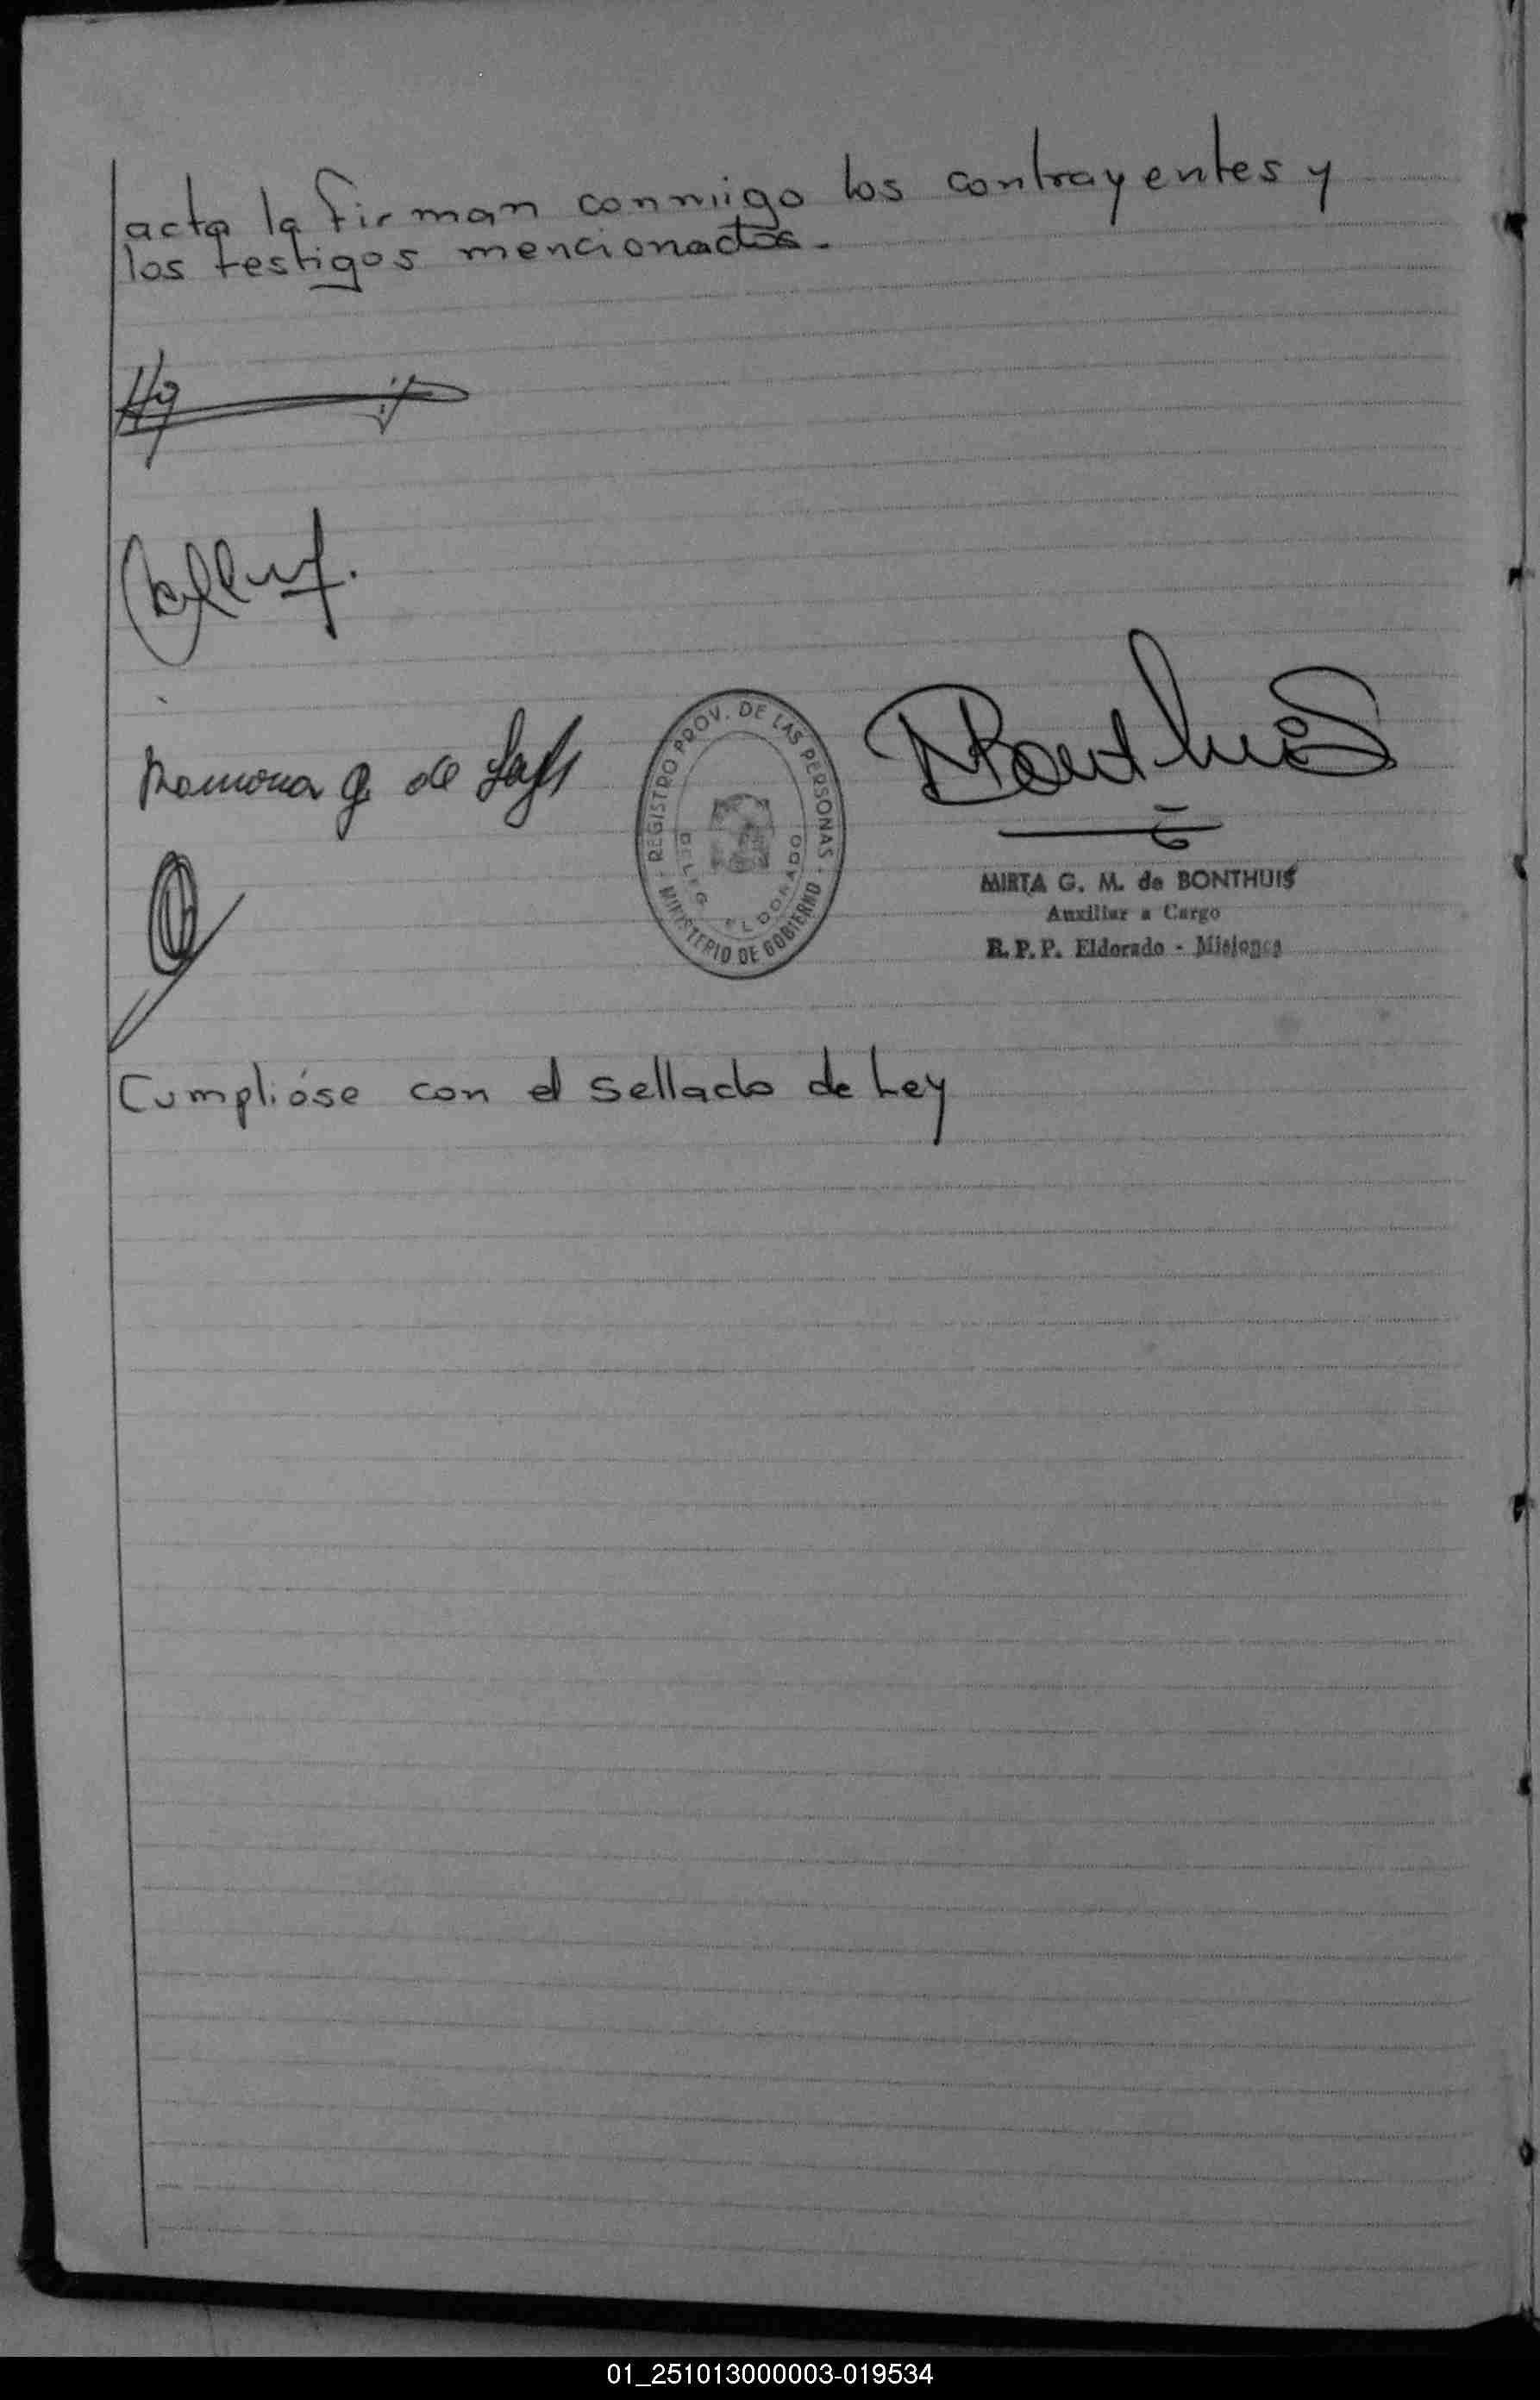 acta la firman conmigo los contrayentes y
los testigos mencionados.
Ramona G. de
Bonthuis
REGISTRO PROV. DE LAS PERSONAS
DELEG. ELDORADO
MINISTERIO DE GOBIERNO
MIRTA G. M. de BONTHUIS
Auxiliar a Cargo
R. P. P. Eldorado - Misiones
Cumplióse con el sellado de Ley
01_251013000003-019534